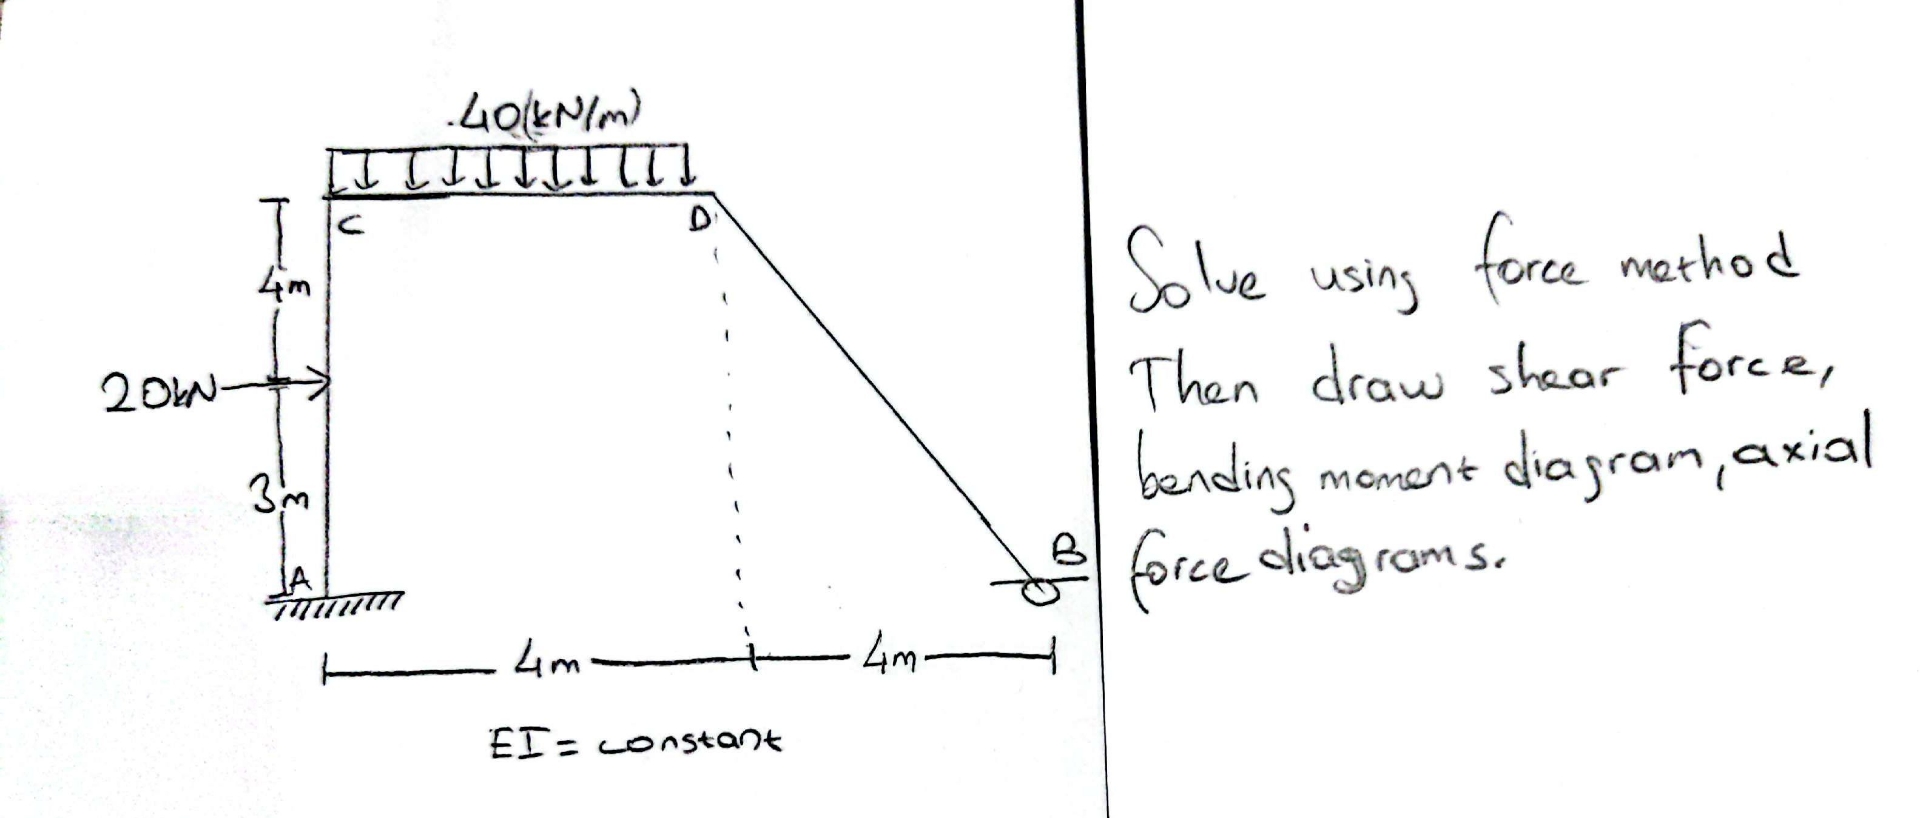 .40(kN/m)
C
D
4m
20kN
3m
A
B
4m
4m
EI = constant
Solve using force method
Then draw shear force,
bending moment diagram, axial
force diagrams.